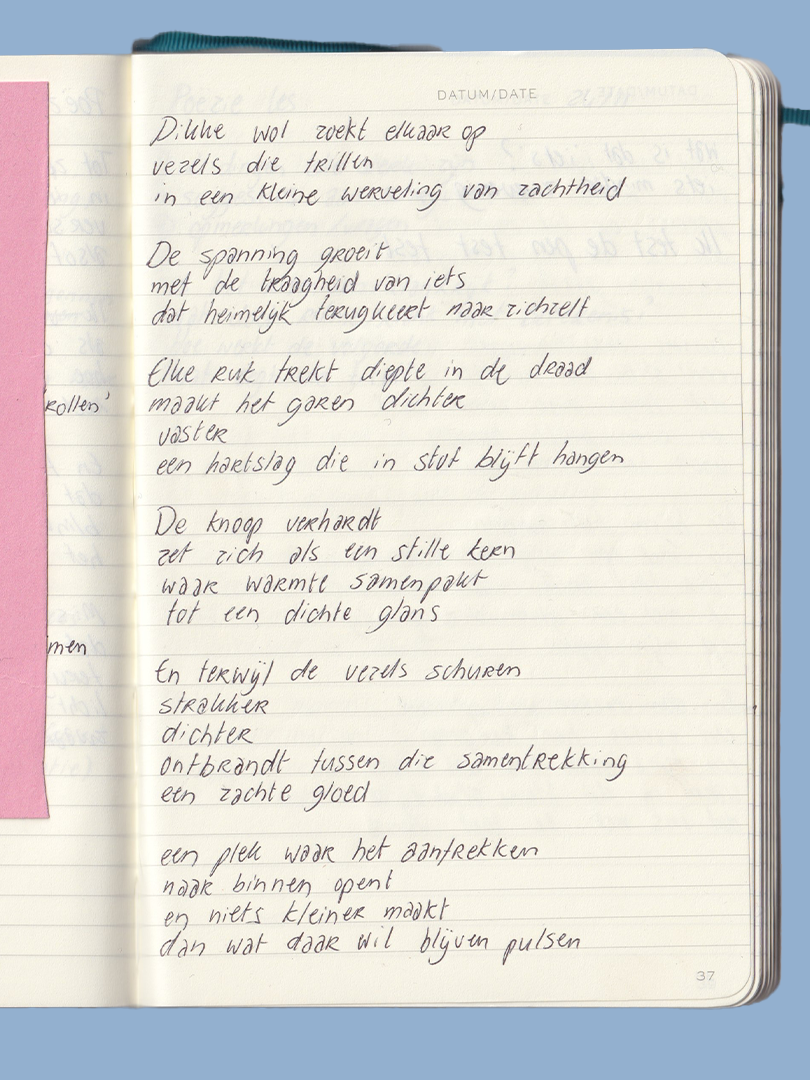 DATUM/DATE
Dikke wol zoekt elkaar op
vezels die trillen
in een kleine werveling van zachtheid
De spanning groeit
met de traagheid van iets
dat heimelijk terugkeert naar zichzelf
Elke ruk trekt diepte in de draad
maakt het garen dichter
vaster
een hartslag die in stof blijft hangen
De knoop verhardt
zet zich als een stille kern
waar warmte samenpakt
tot een dichte glans
En terwijl de vezels schuren
strakker
dichter
ontbrandt tussen die samentrekking
een zachte gloed
een plek waar het aantrekken
naar binnen opent
en niets kleiner maakt
dan wat daar wil blijven pulsen
37
rollen'
men